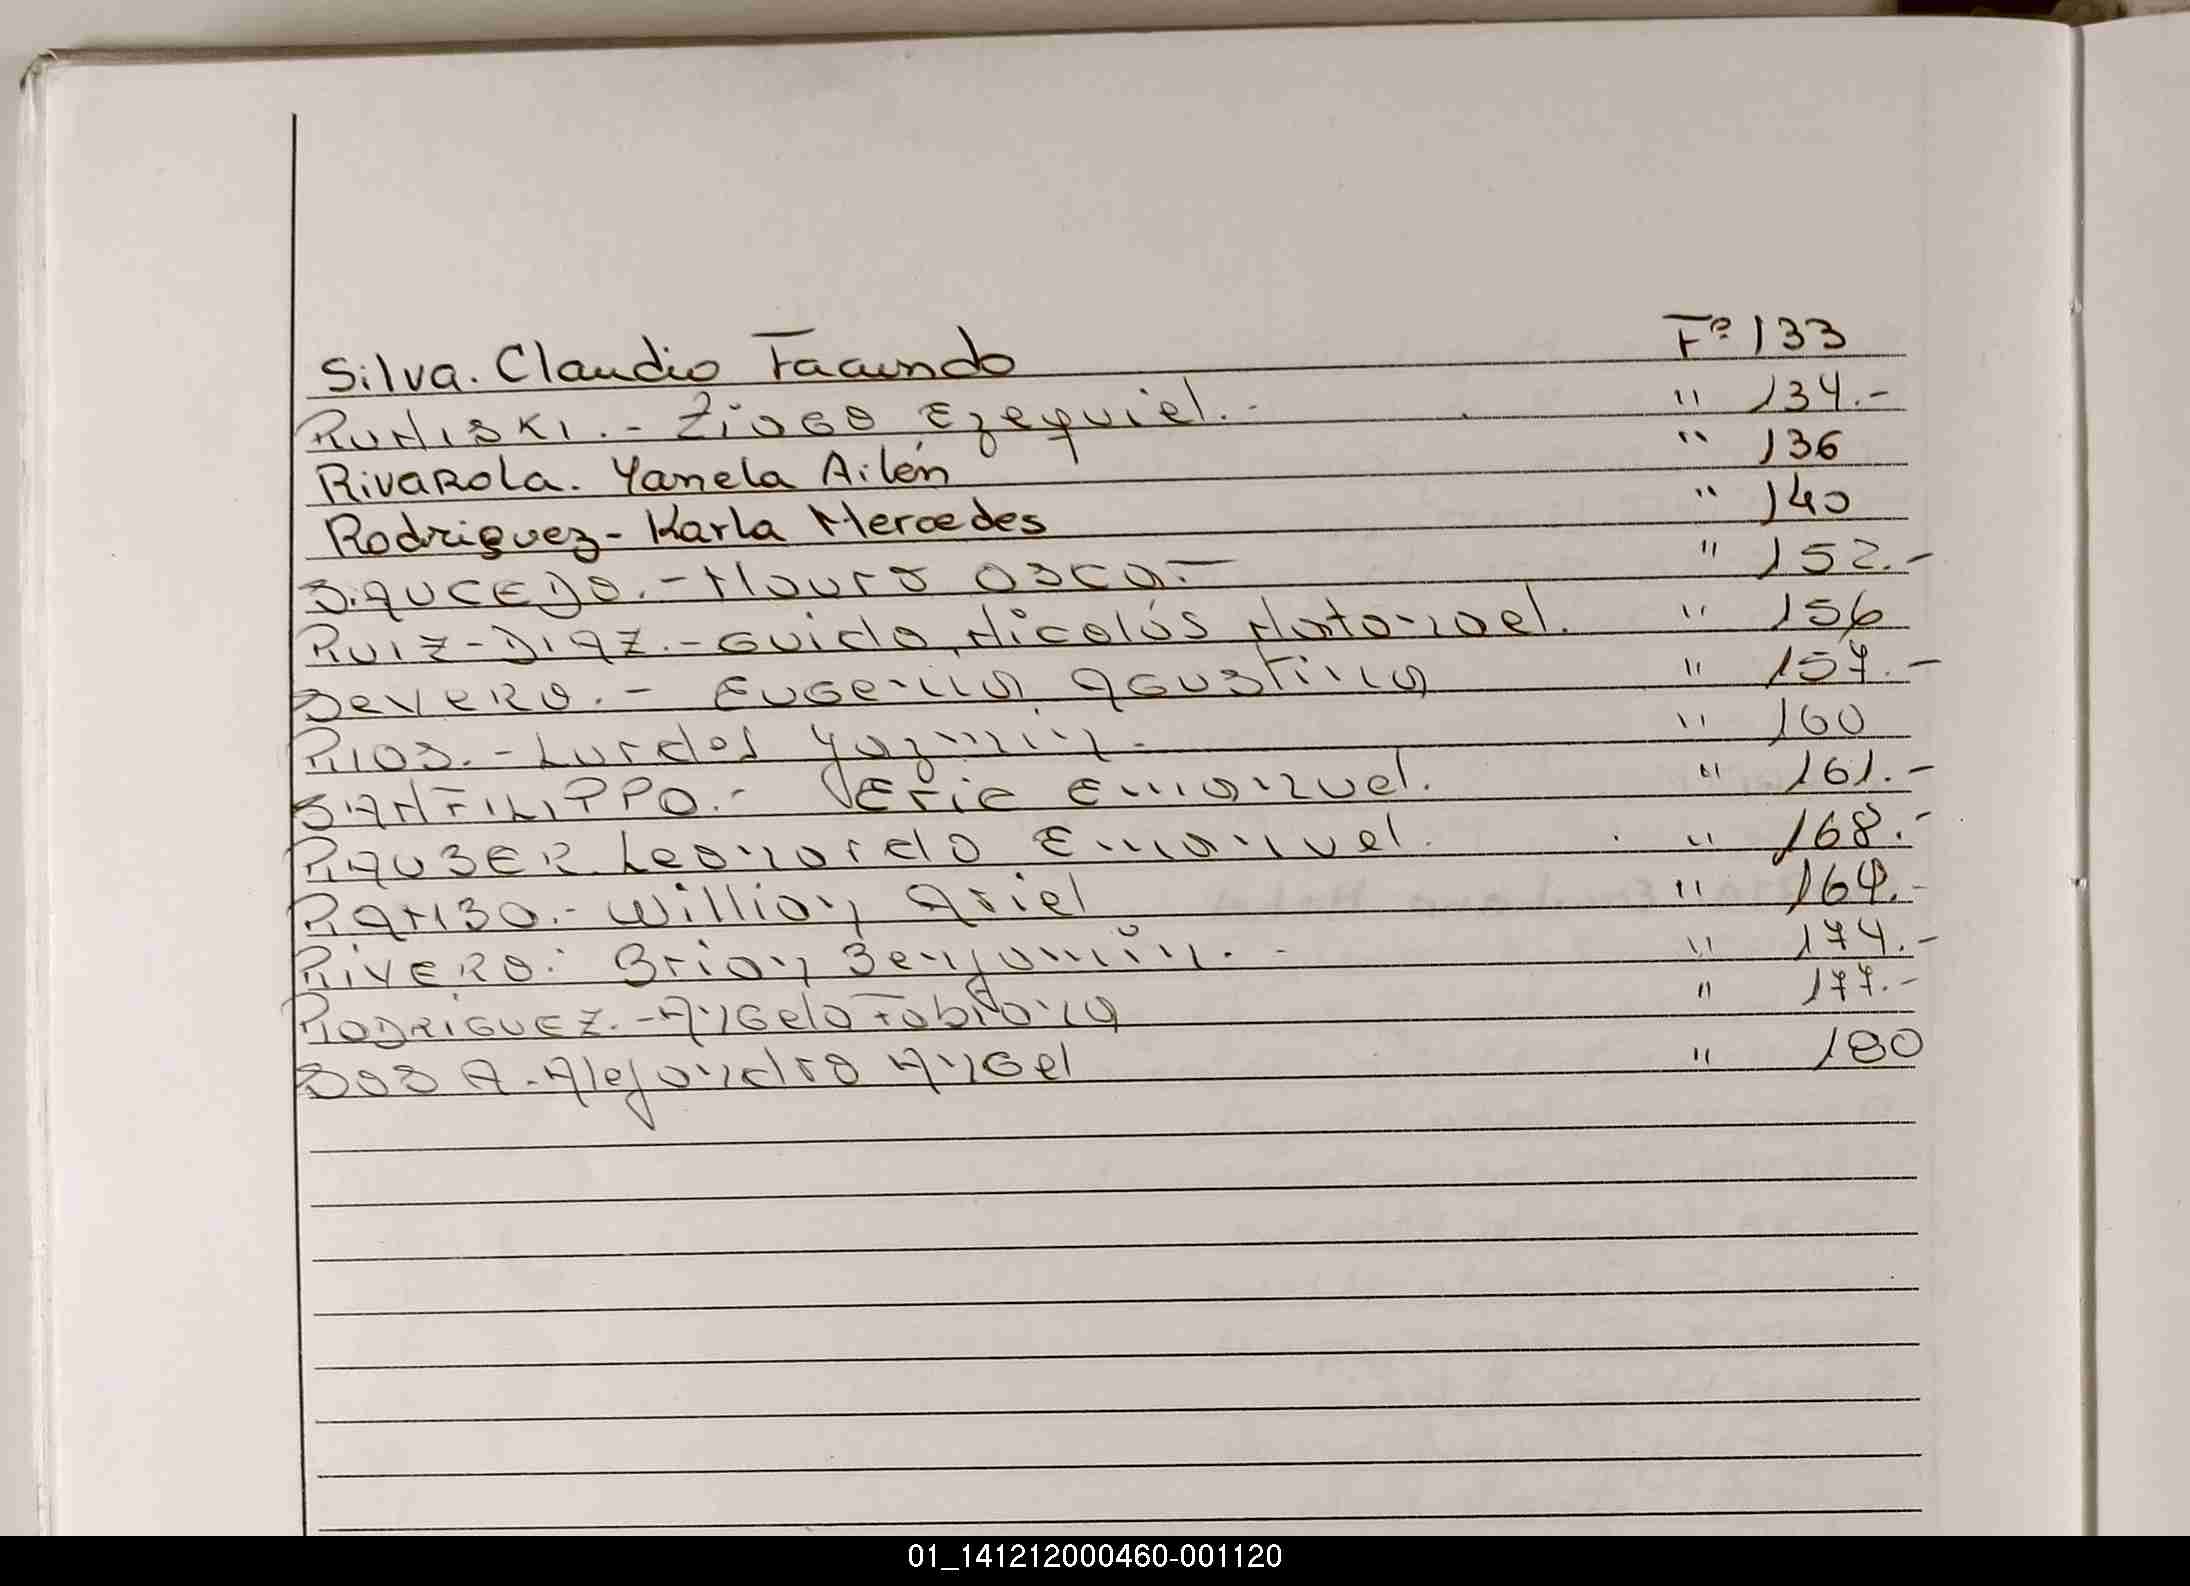 Silva. Claudio Facundo Fº 133
RUNISKI.- Ziago Ezequiel.- " 134.-
Rivarola. Yanela Ailén " 136
Rodriguez- Karla Mercedes " 140
SAUCEDO.- Mauro Oscar " 152.-
RUIZ-DIAZ.- Guido Nicolás Natanael. " 156
SEVERO.- Eugenia Agustina " 157.-
RIOS.- Lurdes Yazmin.- " 160
SANFILIPPO.- Eric Emanuel. " 161.-
RAUBER Leonardo Emanuel. " 168.-
RAMBO.- Willian Ariel " 164.-
RIVERO. Brian Benjamín.- " 174.-
RODRIGUEZ.- Angela Fabiana " 177.-
SOSA.- Alejandro Angel " 180
01_141212000460-001120